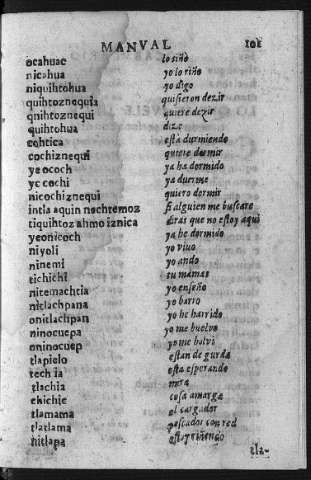 MANVAL 101
ocahuac lo riñò
nicahua yo lo riño
niquihtohua yo digo
quihtoznequia quisieron dezir
quihtoznequi quiere dezir
quihtohua dize
cohtica està durmiendo
cochiznequi quiere dormir
ye ococh ya ha dormido
ye cochi ya duerme
nicochiznequi quiero dormir
intla aquin nechtemoz si alguien me buscare
tiquihtoz ahmo iznica diràs que no estoy aqui
yeonicoch ya he dormido
niyoli yo viuo
ninemi yo ando
tichichi tu mamas
nitemachtia yo enseño
nitlachpana yo barro
onitlachpan yo he barrido
ninocuepa yo me buelvo
oninocuep yo me bolvi
tlapielo estan de guarda
techia esta esperando
tlachia mira
chichic cosa amarga
tlamama el cargador
tlatlama pescador con red
nitlapa estoy tiñendo
tla-